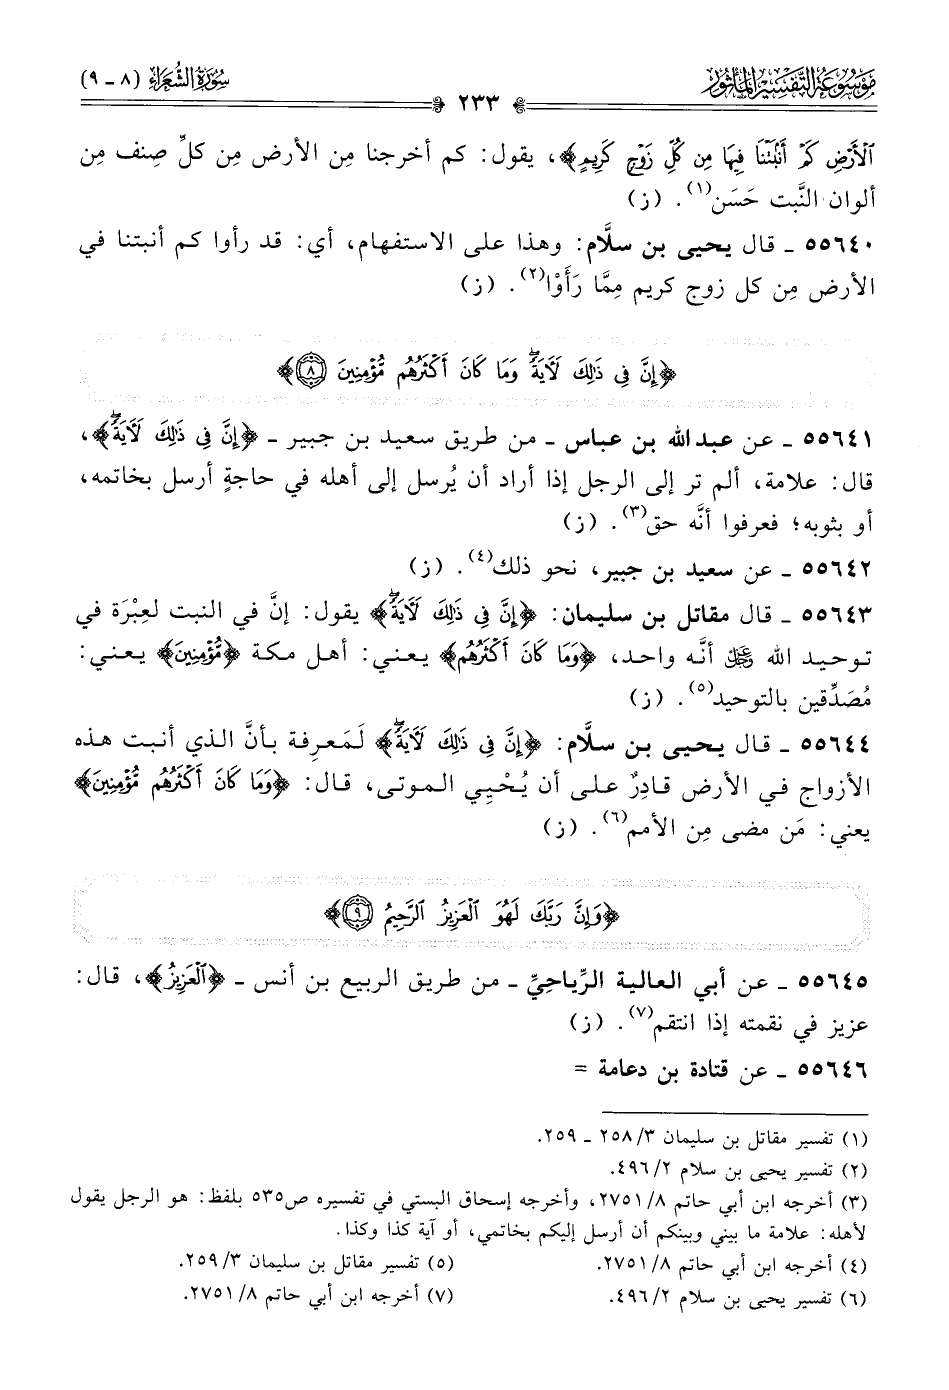 مَوْسُوعَة التَّفْسِير المَأثُور
سُورَةُ الشُّعَرَاء (٨ - ٩)
٢٣٣
ٱلْأَرْضِ كَمْ أَنۢبَتْنَا فِيهَا مِن كُلِّ زَوْجٍ كَرِيمٍ﴾، يقول: كم أخرجنا مِن الأرض مِن كلِّ صِنف مِن
ألوان النَّبت حَسَن(١). (ز)
٥٥٦٤٠ ـ قال يحيى بن سلَّام: وهذا على الاستفهام، أي: قد رأوا كم أنبتنا في
الأرض مِن كل زوج كريم مِمَّا رَأَوْا(٢). (ز)
﴿إِنَّ فِى ذَٰلِكَ لَـَٔايَةًۖ وَمَا كَانَ أَكْثَرُهُم مُّؤْمِنِينَ ٨﴾
٥٥٦٤١ ـ عن عبد الله بن عباس ـ من طريق سعيد بن جبير ـ ﴿إِنَّ فِى ذَٰلِكَ لَـَٔايَةًۖ﴾،
قال: علامة، ألم تر إلى الرجل إذا أراد أن يُرسل إلى أهله في حاجةٍ أرسل بخاتمه،
أو بثوبه؛ فعرفوا أنَّه حق(٣). (ز)
٥٥٦٤٢ ـ عن سعيد بن جبير، نحو ذلك(٤). (ز)
٥٥٦٤٣ ـ قال مقاتل بن سليمان: ﴿إِنَّ فِى ذَٰلِكَ لَـَٔايَةًۖ﴾ يقول: إنَّ في النبت لعِبْرَة في
توحيد الله ﷿ أنَّه واحد، ﴿وَمَا كَانَ أَكْثَرُهُم﴾ يعني: أهل مكة ﴿مُّؤْمِنِينَ﴾ يعني:
مُصَدِّقين بالتوحيد(٥). (ز)
٥٥٦٤٤ ـ قال يحيى بن سلَّام: ﴿إِنَّ فِى ذَٰلِكَ لَـَٔايَةًۖ﴾ لَمَعرِفة بأنَّ الذي أنبت هذه
الأزواج في الأرض قادِرٌ على أن يُحْيِي الموتى، قال: ﴿وَمَا كَانَ أَكْثَرُهُم مُّؤْمِنِينَ﴾
يعني: مَن مضى مِن الأمم(٦). (ز)
﴿وَإِنَّ رَبَّكَ لَهُوَ ٱلْعَزِيزُ ٱلرَّحِيمُ ٩﴾
٥٥٦٤٥ ـ عن أبي العالية الرِّياحيِّ ـ من طريق الربيع بن أنس ـ ﴿ٱلْعَزِيزُ﴾، قال:
عزيز في نقمته إذا انتقم(٧). (ز)
٥٥٦٤٦ ـ عن قتادة بن دعامة =
(١) تفسير مقاتل بن سليمان ٣/ ٢٥٨ ـ ٢٥٩.
(٢) تفسير يحيى بن سلام ٢/ ٤٩٦.
(٣) أخرجه ابن أبي حاتم ٨/ ٢٧٥١، وأخرجه إسحاق البستي في تفسيره ص٥٣٥ بلفظ: هو الرجل يقول
لأهله: علامة ما بيني وبينكم أن أرسل إليكم بخاتمي، أو آية كذا وكذا.
(٤) أخرجه ابن أبي حاتم ٨/ ٢٧٥١.
(٥) تفسير مقاتل بن سليمان ٣/ ٢٥٩.
(٦) تفسير يحيى بن سلام ٢/ ٤٩٦.
(٧) أخرجه ابن أبي حاتم ٨/ ٢٧٥١.